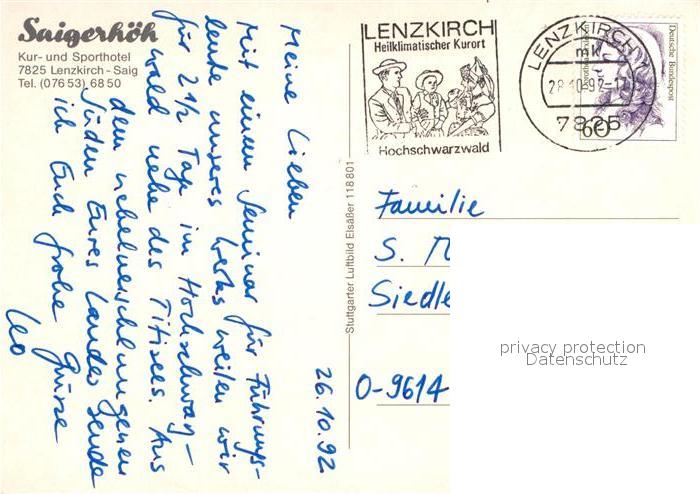 Saigerhöh
Kur- und Sporthotel
7825 Lenzkirch - Saig
Tel. (07653) 6850
26.10.92
Meine Lieben
Mit einem Seminar für Führungs-
leute unseres Werks weilen wir
für 2 1/2 Tage im Hochschwarz-
wald nahe des Titisees. Aus
dem nebelverschlungenen
Süden Eures Landes sende
ich Euch frohe Grüsse
Leo
Stuttgarter Luftbild Elsäßer 118 801
LENZKIRCH
Heilklimatischer Kurort
Hochschwarzwald
LENZKIRCH 1
mk
28.10.92-1
7825
Deutsche Bundespost
60
Familie
S.
Siedle
O-9614
privacy protection
Datenschutz